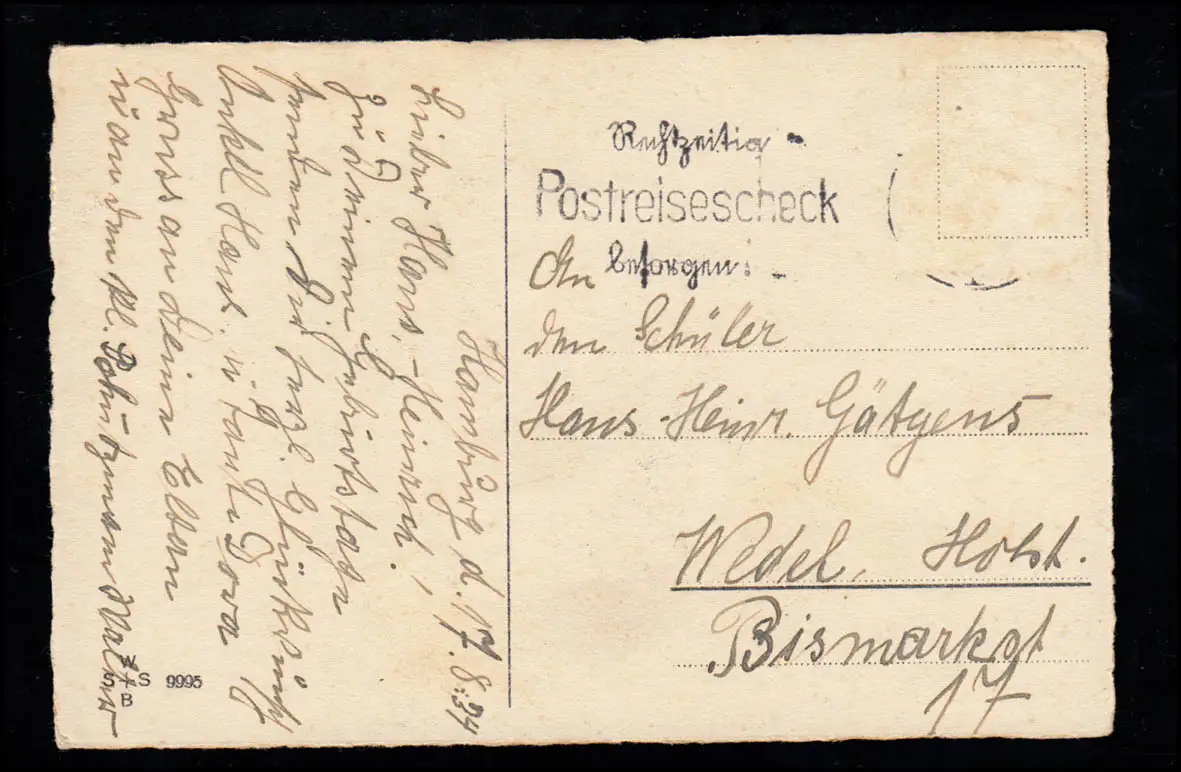 Hamburg, d. 17. 8. 34
Lieber Hans,-Heinrich!
Zu Deinem Geburtstage
senden Dir herzl. Glückwünsche
Onkel Hans u. Tante Dora
Gruss an Deine Eltern
u an den kl.
Z+S 9995
S B
Rechtzeitig
Postreisescheck
besorgen!
An
den Schüler
Hans-Heinr. Gätgens
Wedel, Holst.
Bismarkst
17